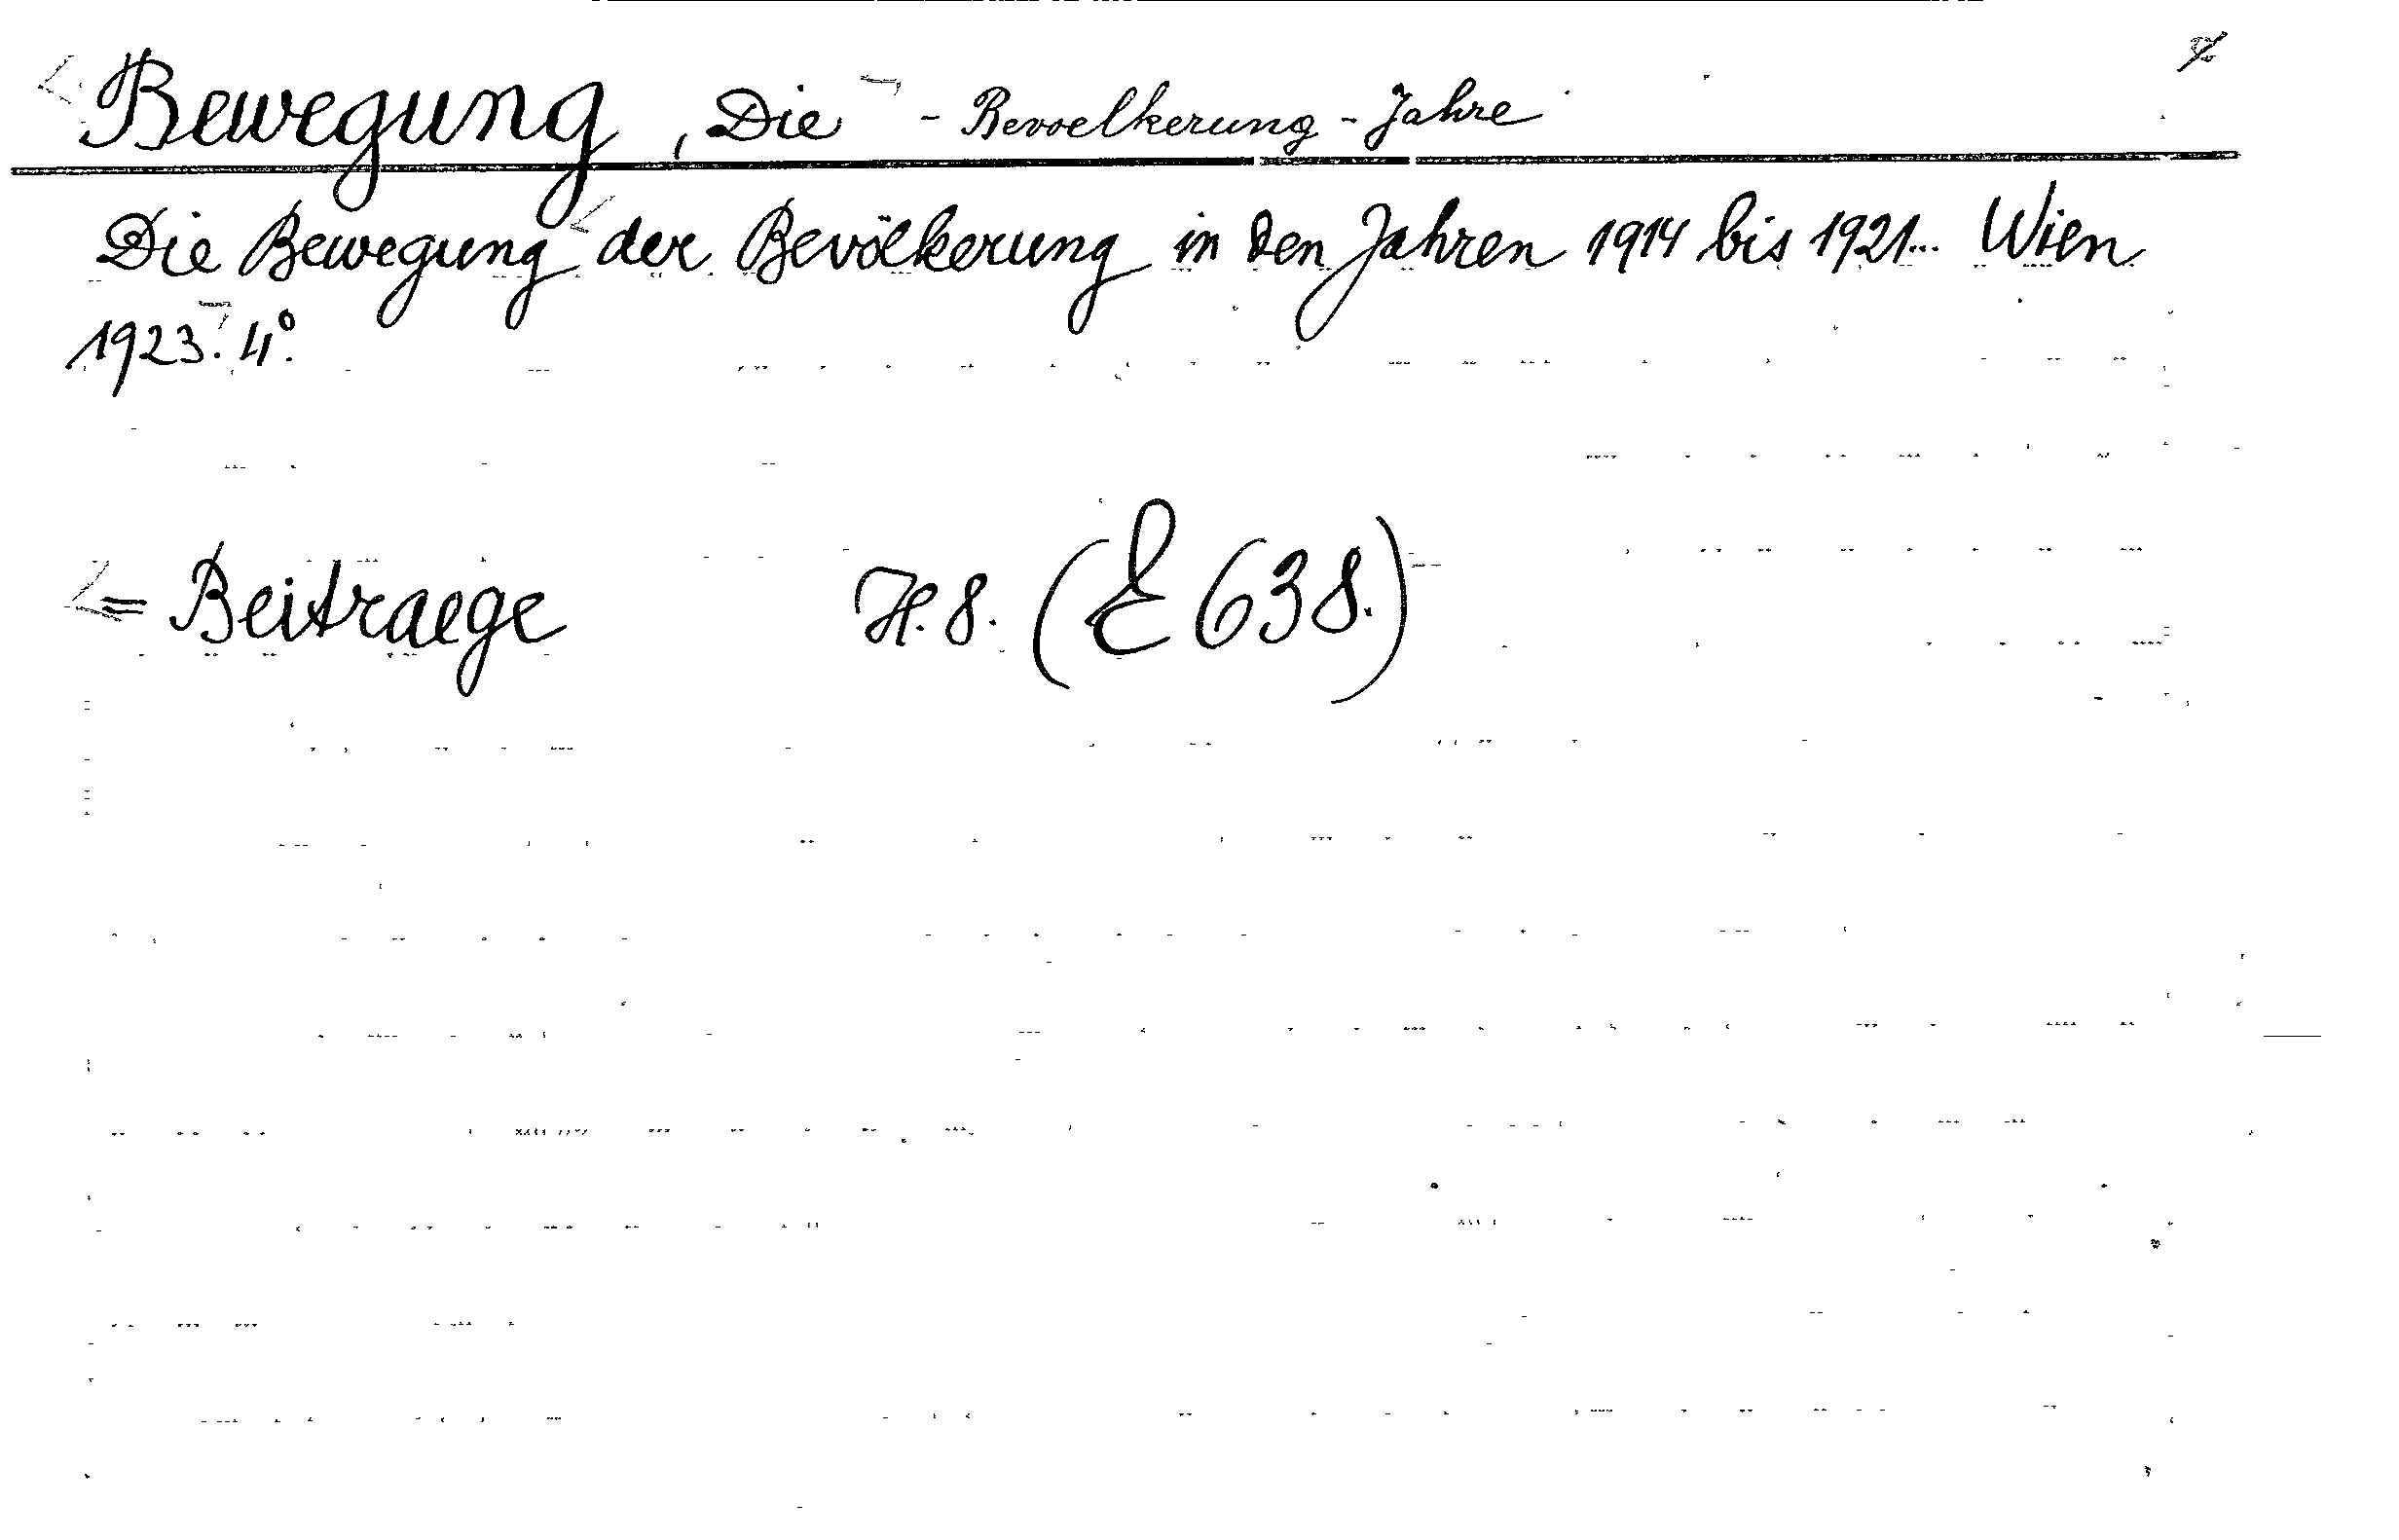 Bewegung, Die - Bevoelkerung - Jahre
Die Bewegung der Bevölkerung in den Jahren 1914 bis 1921... Wien
1923. 4°.
= Beitraege H. 8. (E 638.)